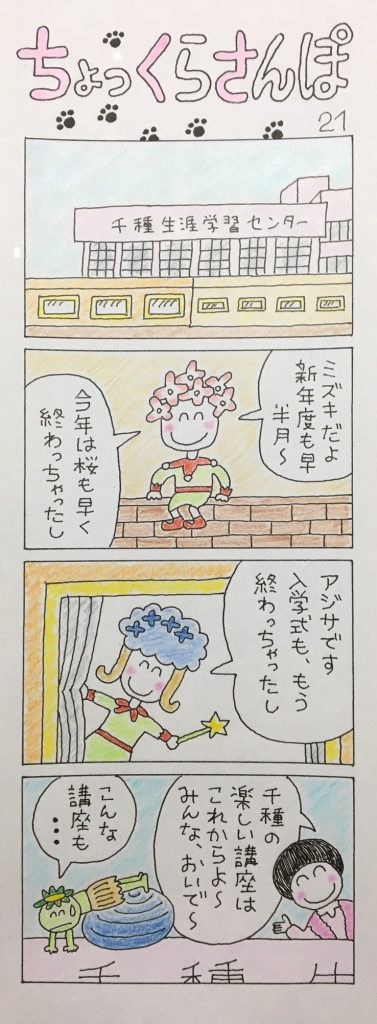 ちょっくらさんぽ
21
千種生涯学習センター
ミズキだよ
新年度も早
半月〜
今年は桜も早く
終わっちゃったし
アジサです
入学式も、もう
終わっちゃったし
千種の
楽しい講座は
これからよ〜
みんな、おいで〜
こんな
講座も
・・・
千種生